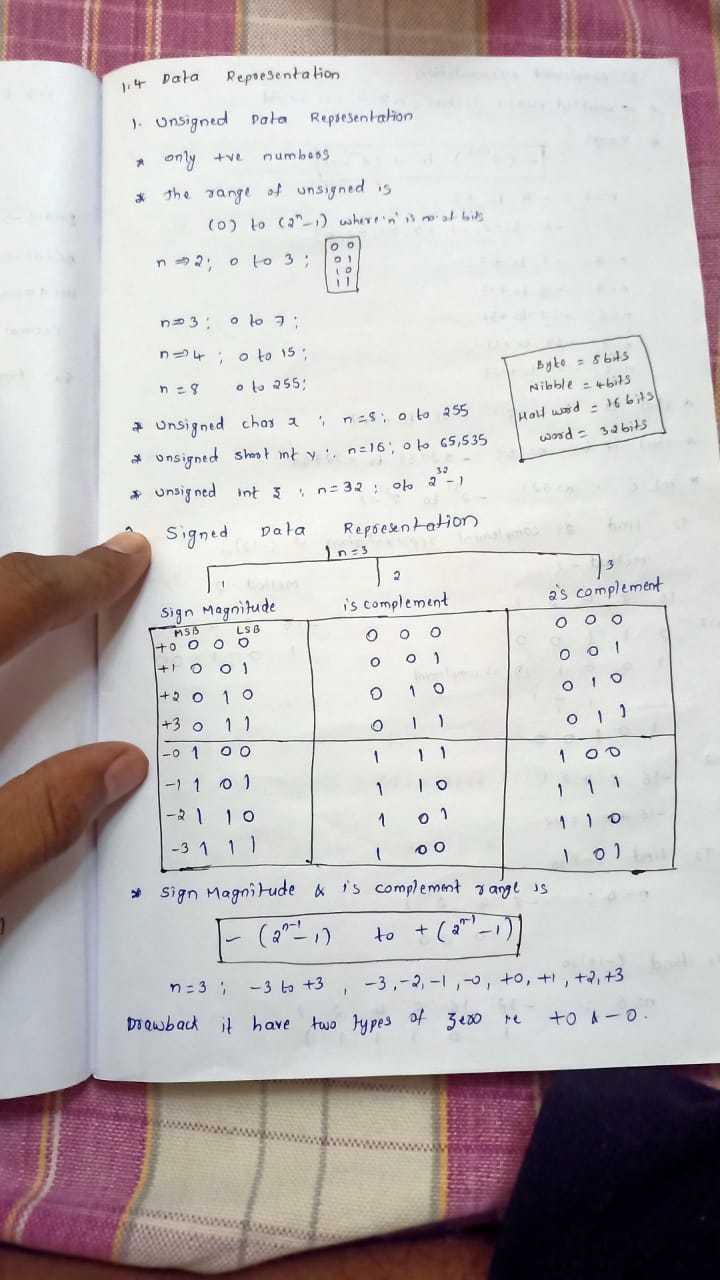 1.4 Data Representation
1. Unsigned Data Representation
* only +ve numbers
* the range of unsigned is
(0) to (2ⁿ-1) where 'n' is no. of bits
n ⇒ 2; 0 to 3 ;
0 0
0 1
1 0
1 1
n ⇒ 3 ; 0 to 7 ;
n ⇒ 4 ; 0 to 15 ;
n = 8 0 to 255;
Byte = 8 bits
Nibble = 4 bits
Half word = 16 bits
word = 32 bits
* unsigned char x ; n=8; 0 to 255
* unsigned short int y ; n=16; 0 to 65,535
* unsigned int z ; n=32 ; 0 to 2³²-1
Signed Data Representation
n=3
1 2 3
Sign Magnitude 1's complement 2's complement
MSB LSB
+0 0 0 0 0 0 0 0 0 0
+1 0 0 1 0 0 1 0 0 1
+2 0 1 0 0 1 0 0 1 0
+3 0 1 1 0 1 1 0 1 1
-0 1 0 0 1 1 1 1 0 0
-1 1 0 1 1 1 0 1 1 1
-2 1 1 0 1 0 1 1 1 0
-3 1 1 1 1 0 0 1 0 1
* Sign Magnitude & 1's complement range is
- (2ⁿ⁻¹-1) to + (2ⁿ⁻¹-1)
n=3 ; -3 to +3 , -3,-2,-1,-0, +0, +1, +2, +3
Drawback it have two types of zero ie +0 & -0.